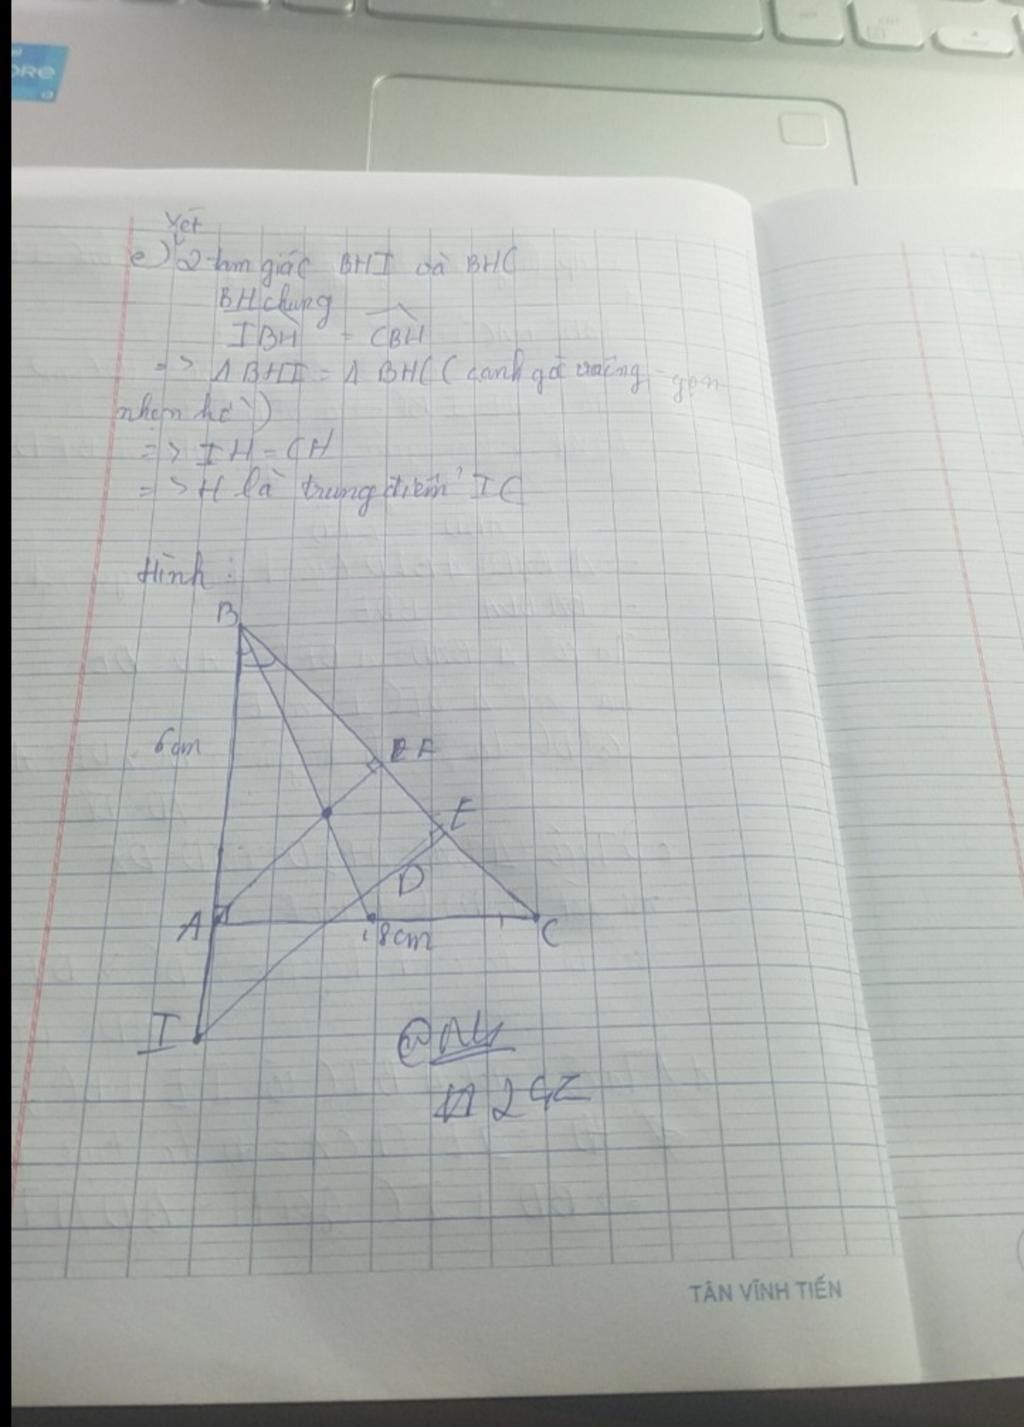 Xét
e) 2 tam giác BHI và BHC
BH chung
IBH = CBH
=> Δ BHI = Δ BHC ( cạnh góc vuông - gón
nhọn kề )
=> IH = CH
=> H là trung điểm IC
Hình :
B
6cm
F
E
D
A
8cm
C
I
TÂN VĨNH TIẾN